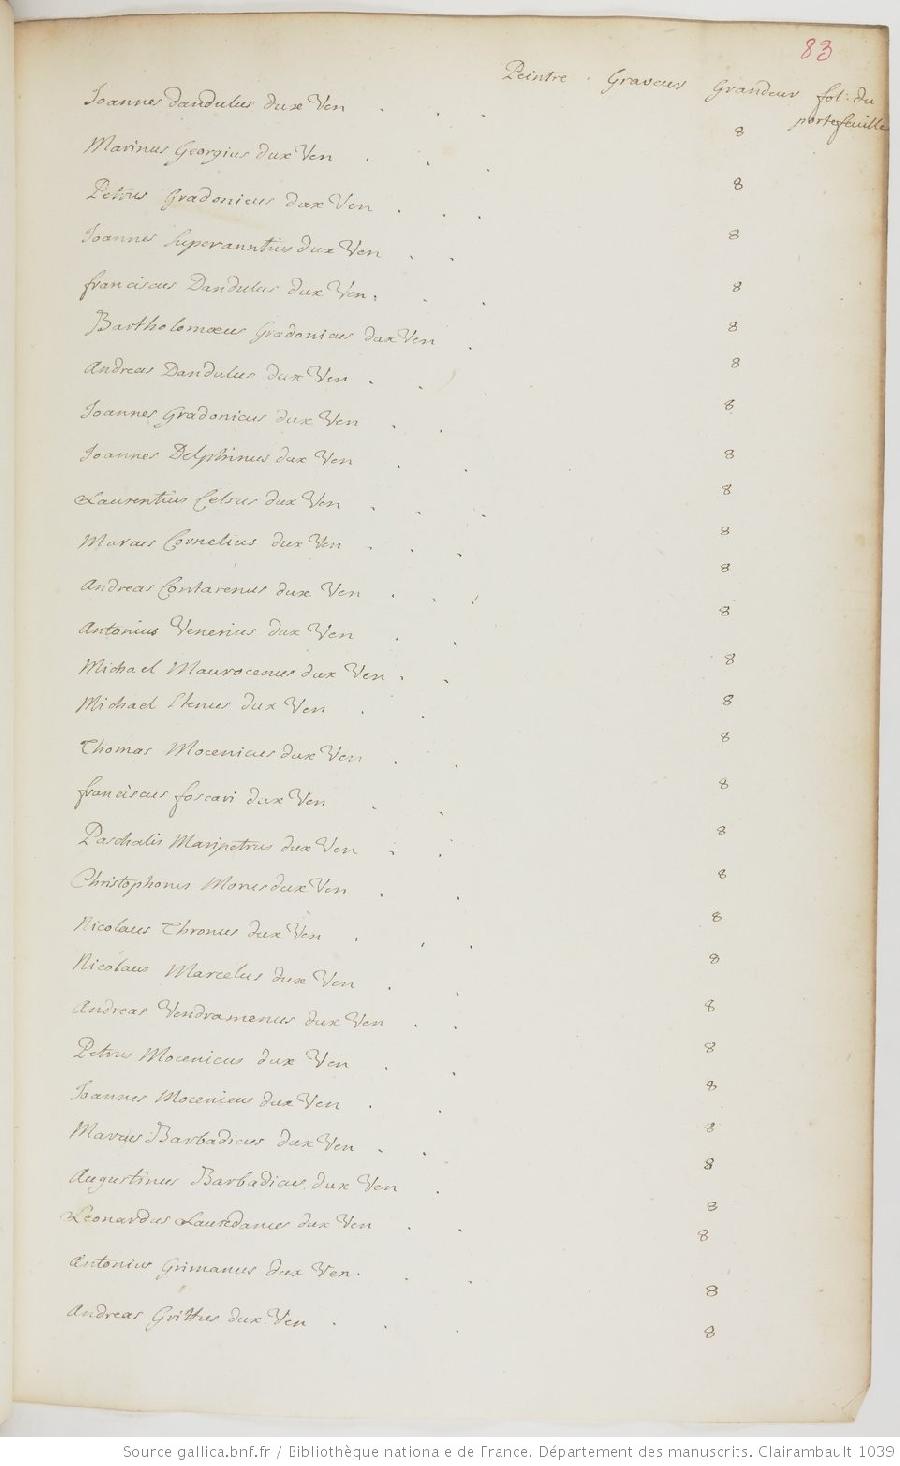 83
Peintre . Graveur Grandeur fol. du
portefeuille
Joannes Dandulus dux Ven . . . 8
Marinus Georgius dux Ven . . . 8
Petrus Gradonicus dux Ven . . . 8
Joannes Superanntius dux Ven . . 8
franciscus Dandulus dux Ven . . . 8
Bartholomœus Gradonicus dux Ven . 8
Andreas Dandulus dux Ven . . 8
Joannes Gradonicus dux Ven . . 8
Joannes Delphinus dux Ven . . 8
Laurentius Celsus dux Ven . . . 8
Marcus Cornelius dux Ven . . . 8
Andreas Contarenus dux Ven . . . 8
Antonius Venerius dux Ven . . 8
Michael Maurocenus dux Ven . . 8
Michael Stenus dux Ven . . 8
Thomas Mocenicus dux Ven . . 8
franciscus foscari dux Ven . . 8
Paschalis Maripetrus dux Ven . . 8
Christophorus Morus dux Ven . . 8
Nicolaus Thronus dux Ven . . . 8
Nicolaus Marcelus dux Ven . . 8
Andreas Vendramenus dux Ven . . 8
Petrus Mocenicus dux Ven . . 8
Joannes Mocenicus dux Ven . . 8
Marcus Barbadicus dux Ven . . 8
Augustinus Barbadicus dux Ven . 8
Leonardus Lauredanus dux Ven . . 8
Antonius Grimanus dux Ven . . . 8
Andreas Grittus dux Ven . . . 8
Source gallica.bnf.fr / Bibliothèque nationale de France. Département des manuscrits. Clairambault 1039